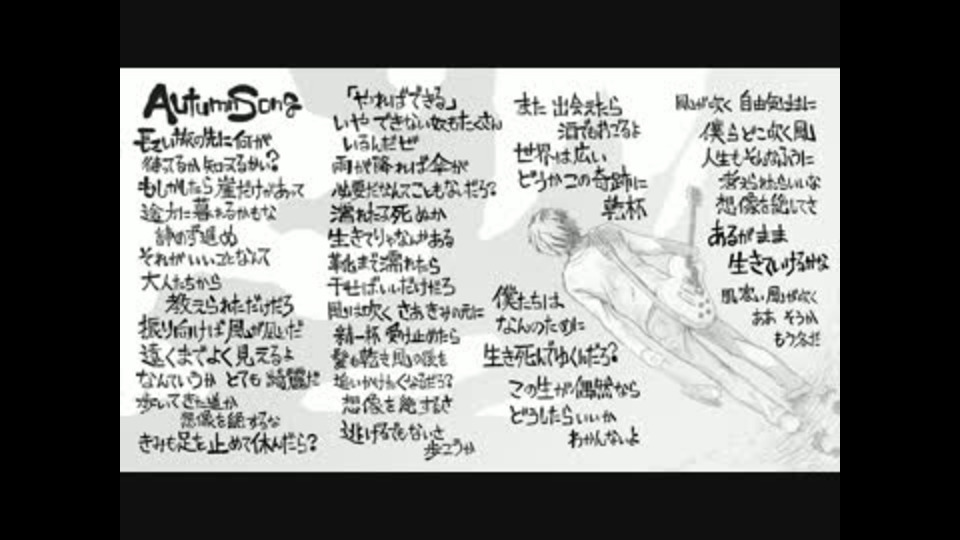 AutumnSong
長い旅の先に何が
待ってるか知ってるかい?
もしかしたら崖だけがあって
途方に暮れるかもな
諦めず進め
それがいいことなんて
大人たちから
教えられただけだろ
振り向けば風が凪いだ
遠くまでよく見えるよ
なんていうか とても 綺麗だ
歩いてきた道か
想像を絶するな
きみも足を止めて休んだら?
「やればできる」
いや できない奴もたくさん
いるんだゼ
雨が降れば傘が
必要だなんてこともないだろ?
濡れたって死ぬか
生きてりゃなんかある
靴まで濡れたら
干せばいいだけだろ
風は吹く さあ きみの元に
精一杯 受け止めたら
髪も乾き 風の後を
追いかけたくなるだろ?
想像を絶するさ
逃げるでもないさ
歩こうか
また 出会えたら
酒でもやってるよ
世界は広い
どうかこの奇跡に
乾杯
僕たちは
なんのために
生き死んでゆくんだろ?
この生が偶然なら
どうしたらいいか
わかんないよ
風が吹く 自由気ままに
僕らどこ吹く風
人生もそんなふうに
考えられたらいいな
想像を絶してさ
あるがまま
生きていけるかな
肌寒い風が吹く
ああ そうか
もう冬だ